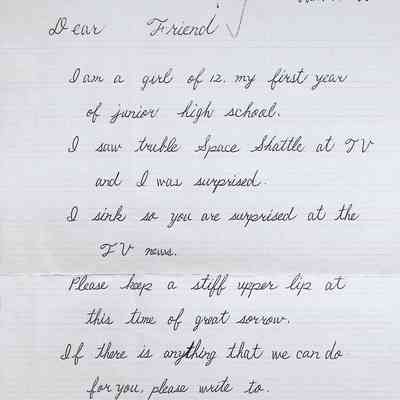 Dear Friend
I am a girl of 12. my first year
of junior high school.
I saw truble Space Shattle at TV
and I was surprised.
I sink so you are surprised at the
TV news.
Please keep a stiff upper lip at
this time of great sorrow.
If there is anything that we can do
for you, please write to.